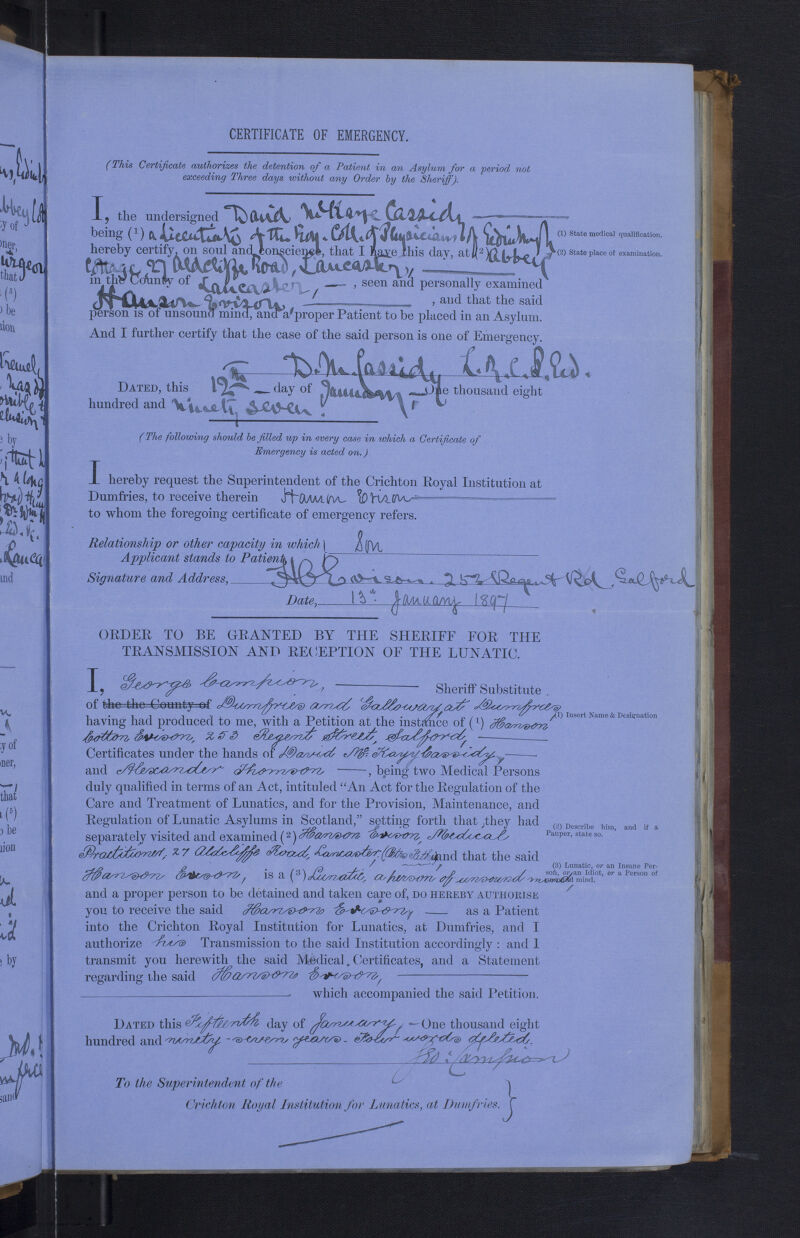 CERTIFICATE OF EMERGENCY.
(This Certificate authorizes the detention of a Patient in an Asylum for a period not
exceeding Three days without any Order by the Sheriff).
I, the undersigned David McKaye Cassidy
being (1) a Licentiate of the Roy. Coll. of Physicians of Edinburgh
(1) State medical qualification.
hereby certify, on soul and conscience, that I have this day, at (2) Abbey
(2) State place of examination.
Cottage 27 Aldcliffe Road, Lancaster,
in the County of Lancaster, , seen and personally examined
Hanson Evison, , and that the said
person is of unsound mind, and a proper Patient to be placed in an Asylum.
And I further certify that the case of the said person is one of Emergency.
D. M. Cassidy L.R.C.P. Ed.
DATED, this 12th day of January One thousand eight
hundred and ninety seven.
(The following should be filled up in every case in which a Certificate of
Emergency is acted on.)
I hereby request the Superintendent of the Crichton Royal Institution at
Dumfries, to receive therein Hanson Evison
to whom the foregoing certificate of emergency refers.
Relationship or other capacity in which
Applicant stands to Patient, Son
Signature and Address, H C Evison. 253 Regent Rd. Salford
Date, 13th January 1897
ORDER TO BE GRANTED BY THE SHERIFF FOR THE
TRANSMISSION AND RECEPTION OF THE LUNATIC.
I, George Campion, Sheriff Substitute
of the the County of Dumfries and Galloway at Dumfries
having had produced to me, with a Petition at the instance of (1) Hanson
(1) Insert Name & Designation
Cotton Evison, 253 Regent Street, Salford,
Certificates under the hands of David Mc Kayy Cassidy,
and Alexander Thomson , being two Medical Persons
duly qualified in terms of an Act, intituled "An Act for the Regulation of the
Care and Treatment of Lunatics, and for the Provision, Maintenance, and
Regulation of Lunatic Asylums in Scotland," setting forth that they had
separately visited and examined (2) Hanson Evison, Medical
(2) Describe him, and if a
Pauper, state so.
Practitioner, 27 Aldcliffe Road, Lancaster and that the said
Hanson Evison, is a (3) Lunatic, a person of unsound mind
(3) Lunatic, or an Insane Per-
son, or an Idiot, or a Person of
unsound mind.
and a proper person to be detained and taken care of, DO HEREBY AUTHORISE
you to receive the said Hanson Evison, as a Patient
into the Crichton Royal Institution for Lunatics, at Dumfries, and I
authorize his Transmission to the said Institution accordingly: and I
transmit you herewith the said Medical Certificates, and a Statement
regarding the said Hanson Evison,
which accompanied the said Petition.
DATED this Fifteenth day of January, One thousand eight
hundred and ninety-seven years. Four words deleted.
Geo: Campion
To the Superintendent of the
Crichton Royal Institution for Lunatics, at Dumfries.